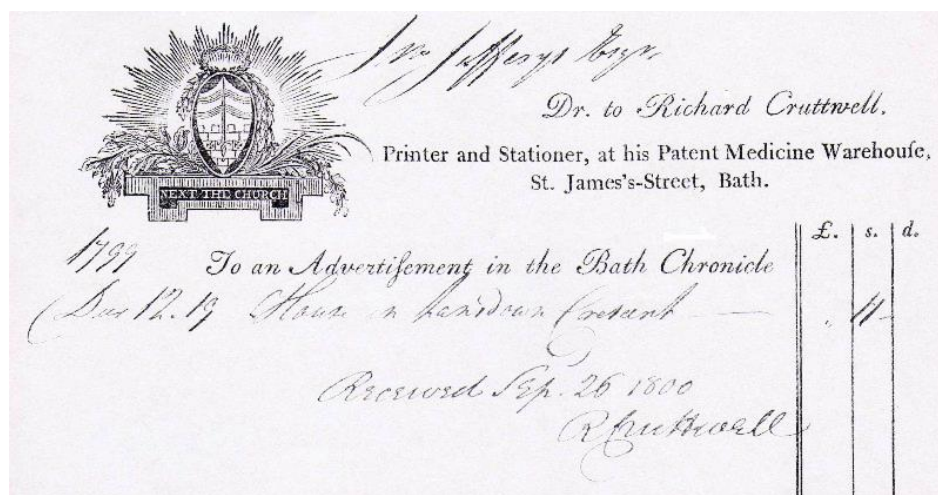 Jno Jefferys Esqr.
Dr. to Richard Cruttwell,
Printer and Stationer, at his Patent Medicine Warehouſe,
St. James's-Street, Bath.
NEXT THE CHURCH
£. s. d.
1799
To an Advertiſement in the Bath Chronicle
Dec 12. 19 House in Lansdown Crescent — „ 11 -
Received Sep. 26 1800
R Cruttwell